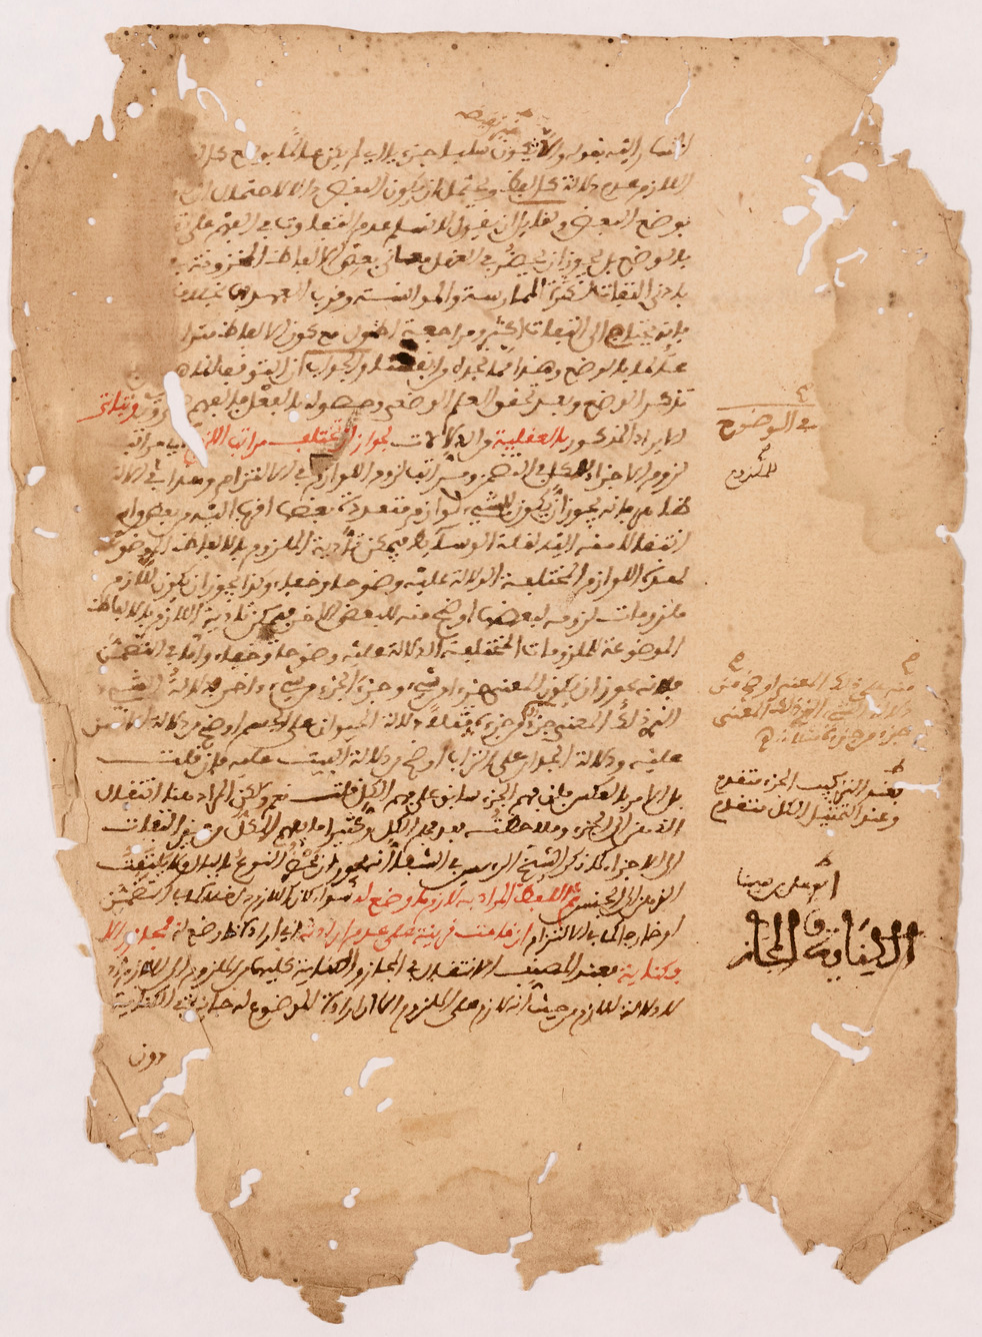 أشار إليه بقوله وإلا لا يكون سلب جزئي أي لم يكن عالما بوضع كل
اللازم عدم دلالة كل لفظ ويحتمل أن يكون البعض دالا لاحتمال أن
بوضع البعض ولقائل أن يقول لا نسلم عدم التفاوت في الفهم على
بالوضع بل يجوز أن يحضر في العقل معاني بعض الألفاظ المخزونة
بأدنى التفات لكثرة الممارسة والموانسة وقرب العهد بها بخلاف
فإنه يحتاج إلى التفات أكثر ومراجعة أطول مع كون الألفاظ
عالما بالوضع وهذا مما نجده من والجواب أن التوقف إنما هو
تذكر الوضع وبعد تحقق العلم بالوضع وحصوله بالفعل فالفهم ويتأتى
الإيراد المذكور بالعقلية من الدلالات لجواز أن تختلف مراتب أي مراتب
لزوم الأجزاء للكل في التضمن ومراتب لزوم اللوازم في الالتزام وهذا في
ظاهر فإنه يجوز أن يكون للشيء لوازم متعددة بعضها أقرب إليه من بعض
انتقالا منه إليه لقلة الوسائط فيمكن تأدية الملزوم بالألفاظ الموضوعة
لهذه اللوازم المختلفة الدلالة عليه وضوحا وخفاء وكذا يجوز أن يكون للازم
ملزومات لزومه لبعضها أوضح منه للبعض الآخر فيمكن تأدية اللازم بالألفاظ
الموضوعة للملزومات المختلفة الدلالة عليه وضوحا وخفاء وأما في التضمن
فلأنه يجوز أن يكون المعنى جزء من شيء وجزء الجزء من شيء آخر فدلالة الشيء
الذي ذلك المعنى جزء من جزئه مثلا دلالة الحيوان على الجسم أوضح من دلالة الإنسان
عليه ودلالة الجدار على التراب أوضح من دلالة البيت عليه فإن قلت
بل الأمر بالعكس فإن فهم الجزء سابق على فهم الكل قلت نعم ولكن المراد هنا انتقال
الذهن إلى الجزء وملاحظته بعد فهم الكل وكثيرا ما يفهم الكل من غير التفات
إلى الأجزاء كما ذكر الشيخ الرئيس في الشفاء أنه يجوز أن يخطر النوع بالبال ولا يلتفت
الذهن إلى الجنس ثم اللفظ المراد به لازم ما وضع له سواء كان اللازم داخلا كما في التضمن
أو خارجا كما في الالتزام إن قامت قرينة على عدم إرادته أي إرادة ما وضع له فمجاز وإلا
فكناية فعند المصنف الانتقال في المجاز والكناية كليهما من الملزوم إلى اللازم إذ
لا دلالة للازم من حيث أنه لازم على الملزوم إلا أن إرادة الموضوع له جائزة في الكناية
دون
في الوضوح
للملزوم
منه على ذلك المعنى أوضح من
دلالة الشيء الذي ذلك المعنى
جزء من جزئه
فعند التركيب الجزء متقدم
وعند التحليل الكل متقدم
الكناية والمجاز